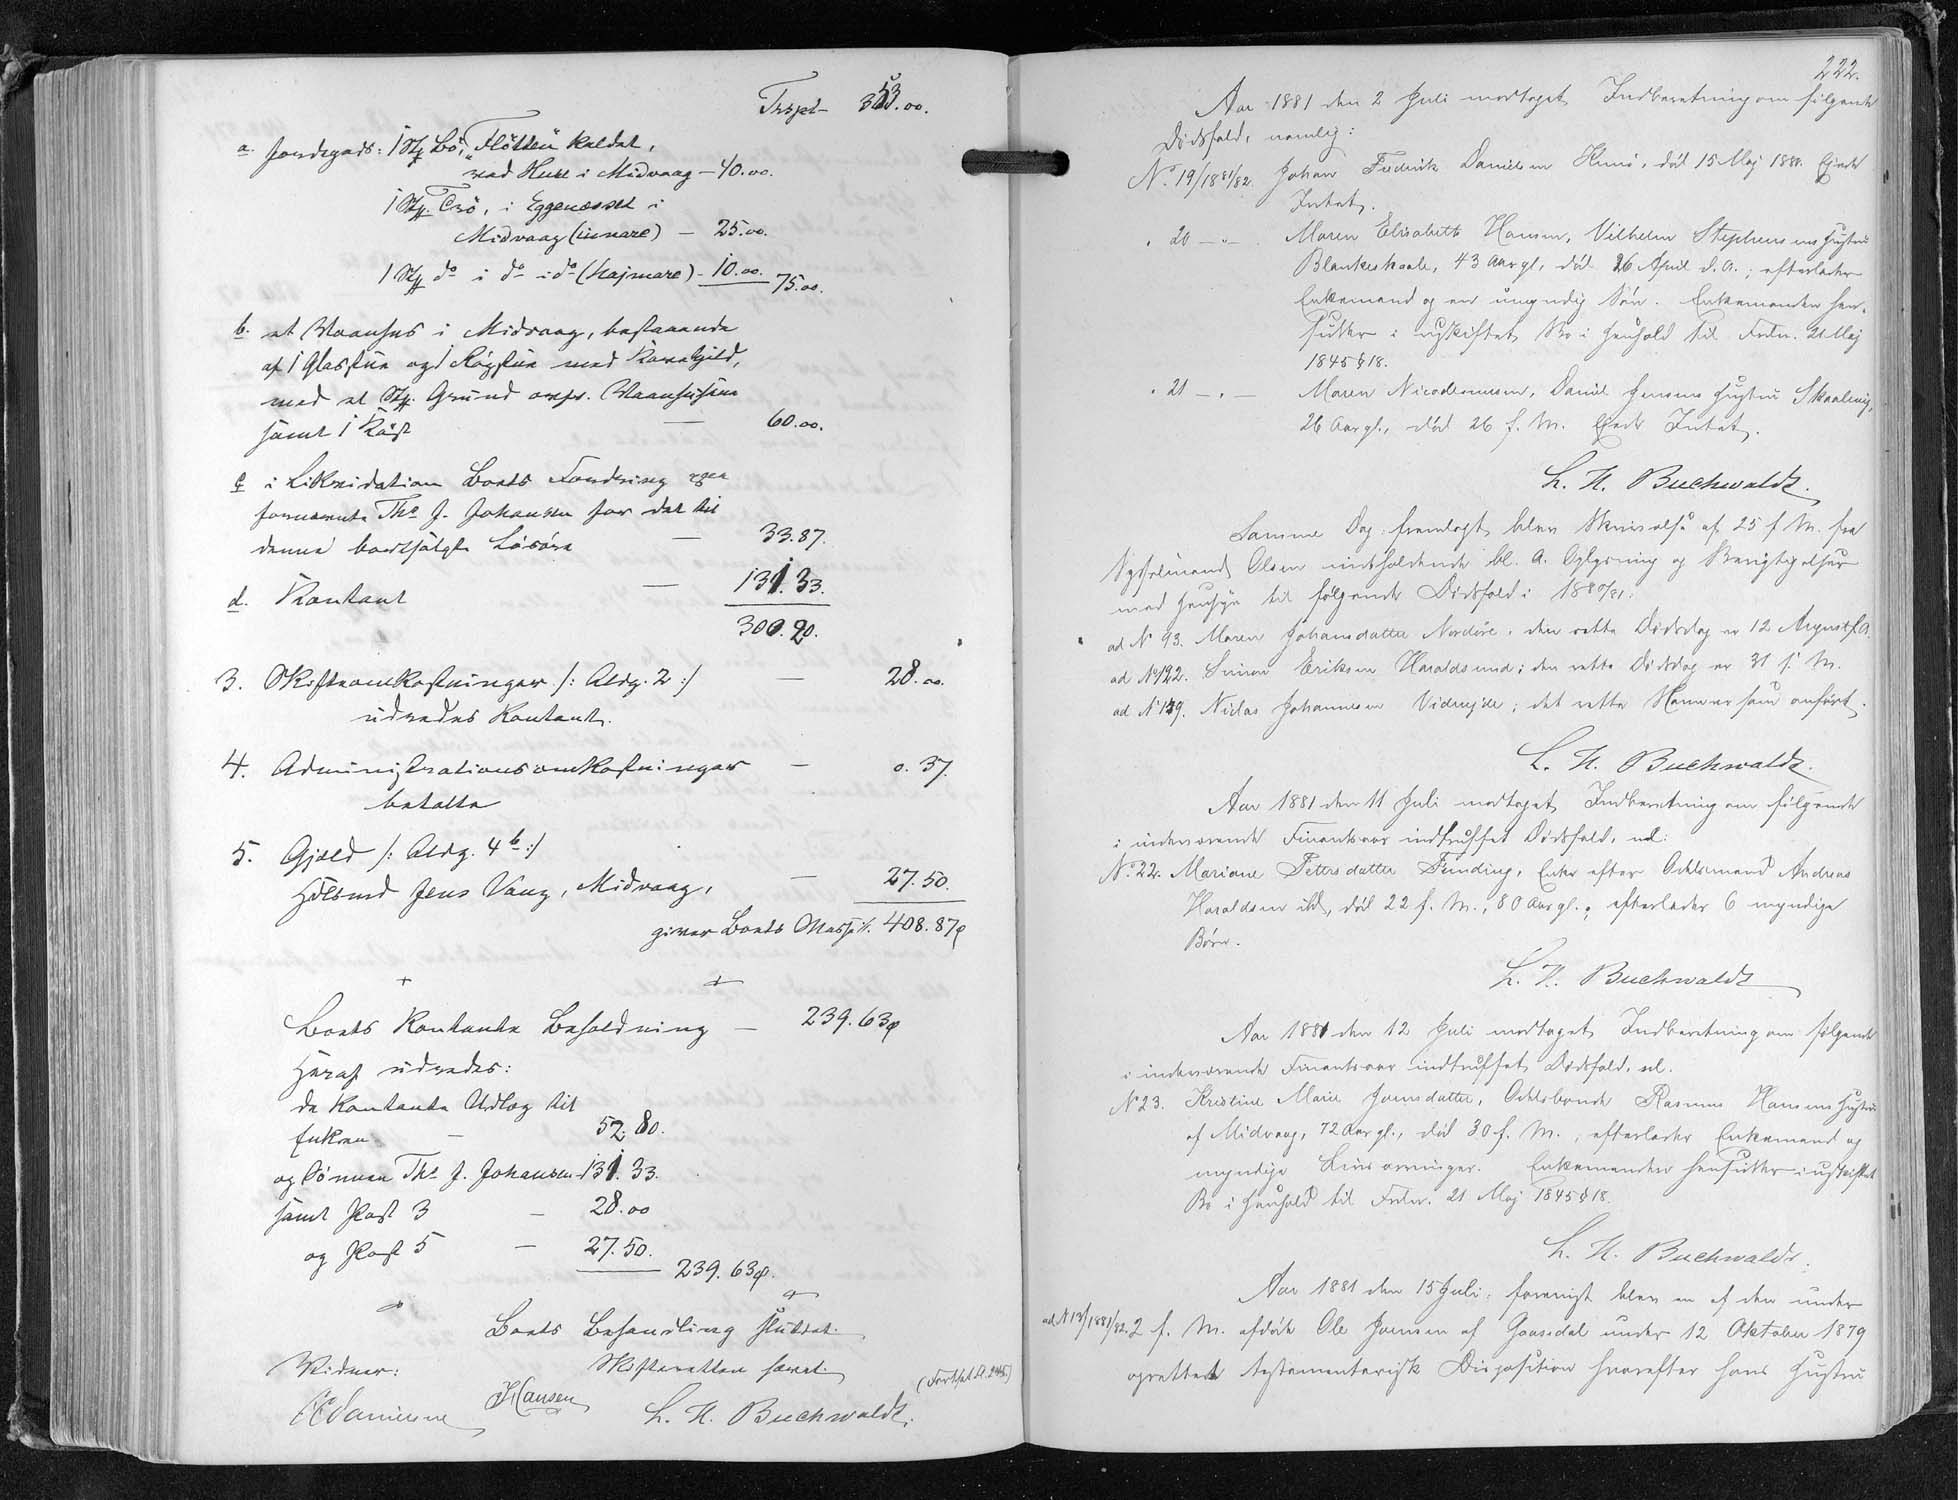 Trspt 353.00.
a. Jordegods: 1 Stk Bø, "Flötten" kaldet,
med Huse i Midvaag - 40.00.
1 Stk. Trö, i Eggenæsset i
Midvaag (innare) - 25.00.
1 Stk do i do i do (hajmare) - 10.00. 75.00.
b. et Vaanhus i Midvaag, bestaaende
af 1 Glasstue og 1 Røgstue med
med et Stk. Grund
samt 1 60.00.
c i Likvidation Boets Fordring
fornævnte Ths J. Johansen for det til
denne bortsolgte Løsøre - 33.87.
d. Kontant - 131.33.
300.20.
3. Skifteomkostninger /: Aldg. 2 :/ - 28.00.
udredes kontant.
4. Administrationsomkostninger - 0.37.
betalte
5. Gjæld /: Aldg. 4 b :/
Jens Vang, Midvaag, - 27.50.
giver Boets Masse 408.87
Boets kontante Beholdning - 239.63
Heraf udredes:
de kontante Udlæg til
Enken - 52.80.
og Sønnen Ths J. Johansen - 131.33.
samt Post 3 - 28.00
og Post 5 - 27.50.
239.63
Boets Behandling sluttet.
Vidner: Skifteretten hævet.
(Fortsat
JHansen L. H. Buchwaldt.
222.
Aar 1881 den 2 Juli modtaget Indberetning om følgende
Dødsfald, nemlig:
No. 19/1881/82. Johan Fredrik Danielsen død 15 Maj 1881. Ejede
Intet.
" 20 - " - Maren Elisabeth Hansen, Vilhelm Stephensens Hustru
Blankeskaale, 43 Aar gl., død 26 April d. A.; efterlader
Enkemand og en umyndig Søn. Enkemanden hen-
sidder i uskiftet Bo i Henhold til Frdn. 21 Maj
1845 § 18.
" 21 - " - Maren Nicodemusen, Daniel Jensens Hustru Skaalevig,
26 Aar gl., død 26 f. M. Ejede Intet.
L. H. Buchwaldt.
Samme Dag fremlagt blev Skrivelse af 25 f. M. fra
Sysselmand Olsen indholdende bl. A. Oplysning og Berigtigelser
med Hensyn til følgende Dødsfald i 1880/81:
ad No 93. Maren Johansdatter Nordøre, den rette Dødsdag er 12 August f. A.
ad No 122. Simon Eriksen Haraldsund; den rette Dødsdag er 31 f. M.
ad No 139. Niclas Johannesen Viderejde; det rette Navn er som anført.
L. H. Buchwaldt.
Aar 1881 den 11 Juli modtaget Indberetning om følgende
i indeværende Finantsaar indtruffet Dødsfald, nl:
No. 22. Mariane Petersdatter Funding, Enke efter Odelsmand Andreas
Haraldsen ibd., død 22 f. M., 80 Aar gl.; efterlader 6 myndige
Børn.
L. H. Buchwaldt
Aar 1881 den 12 Juli modtaget Indberetning om følgende
i indeværende Finantsaar indtruffet Dødsfald, nl.
No 23. Kristine Marie Joensdatter, Odelsbonde Rasmus Hansens Hustru
af Midvaag, 72 Aar gl., død 30 f. M., efterlader Enkemand og
myndige Livsarvinger. Enkemanden hensidder i uskiftet
Bo i Henhold til Frdn. 21 Maj 1845 § 18.
L. H. Buchwaldt.
Aar 1881 den 15 Juli, foreviist blev en af den under
ad No 13/1881/82. 2 f. M. afdøde Ole Joensen af Gaasedal under 12 Oktober 1879
oprettede testamentarisk Disposition hvorefter hans Hustru